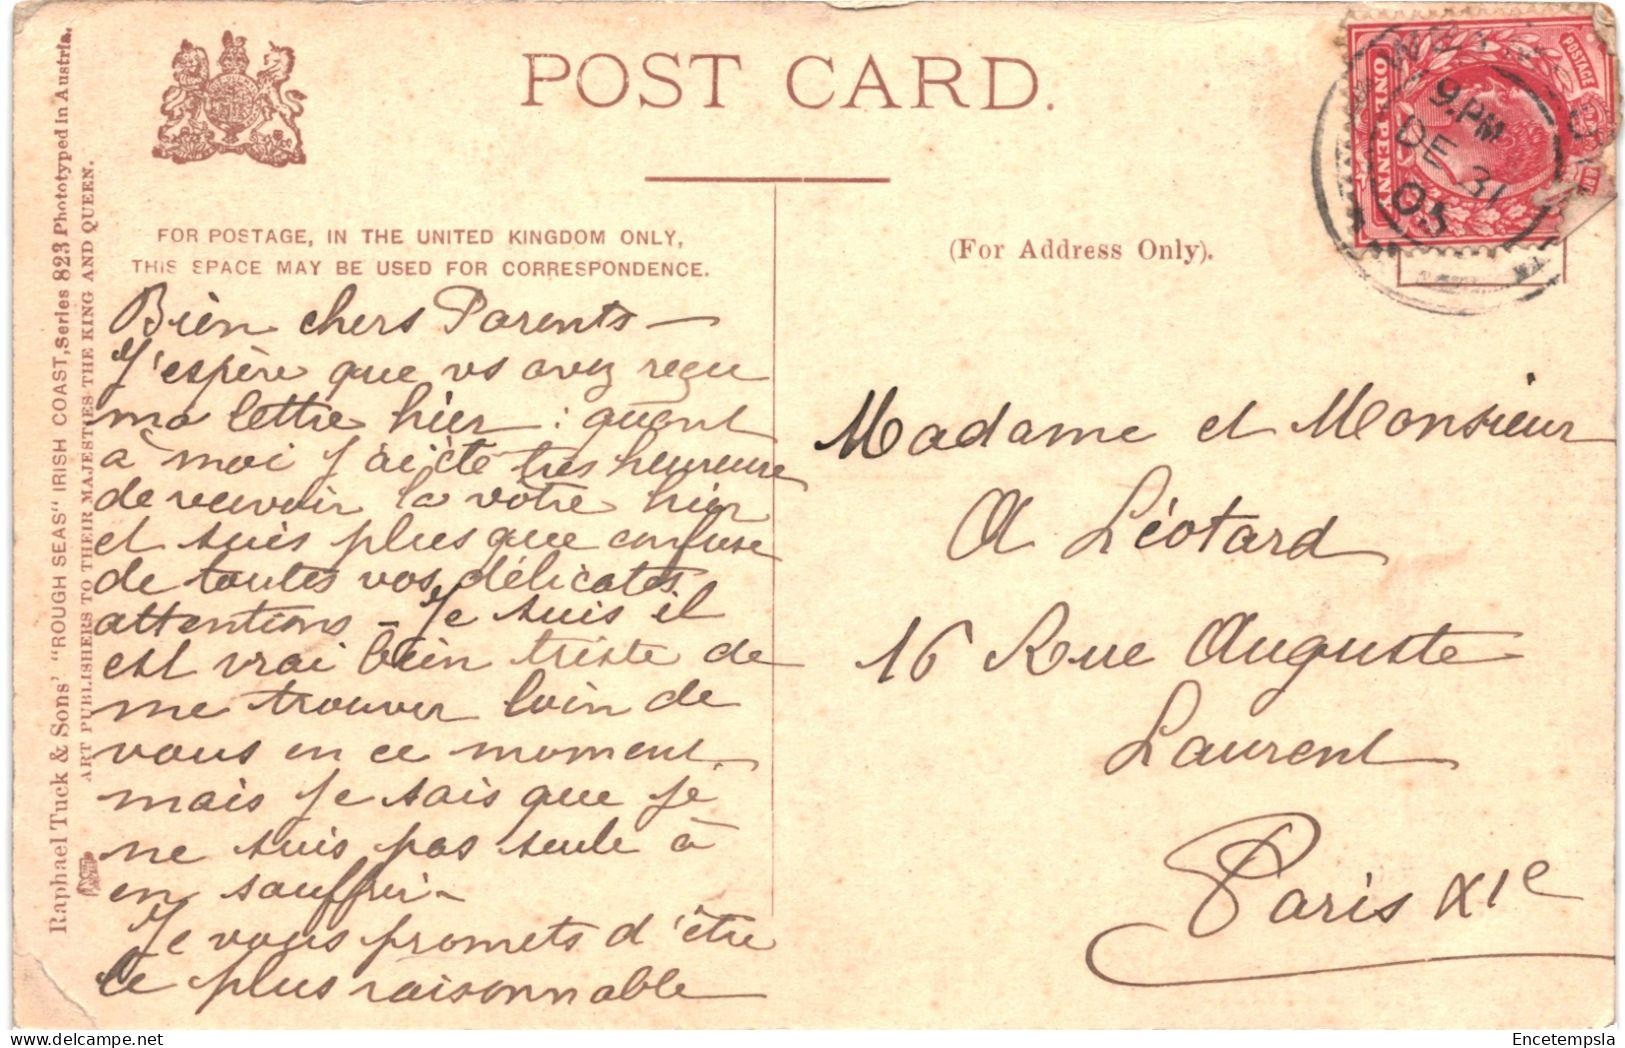 POST CARD.
FOR POSTAGE, IN THE UNITED KINGDOM ONLY,
THIS SPACE MAY BE USED FOR CORRESPONDENCE.
(For Address Only).
Raphael Tuck & Sons' "ROUGH SEAS" IRISH COAST, Series 823 Phototyped in Austria.
ART PUBLISHERS TO THEIR MAJESTIES THE KING AND QUEEN.
POSTAGE
ONE PENNY
9.PM
DE 31
05
Bien chers Parents —
J'espère que vs avez reçu
ma lettre hier : quant
à moi j'ai été très heureuse
de recevoir la vôtre hier
et suis plus que confuse
de toutes vos délicates
attentions — Je suis il
est vrai bien triste de
me trouver loin de
vous en ce moment
mais je sais que je
ne suis pas seule à
en souffrir —
Je vous promets d'être
le plus raisonnable
Madame et Monsieur
A Léotard
16 Rue Auguste
Laurent
Paris XIe
Encetempsla